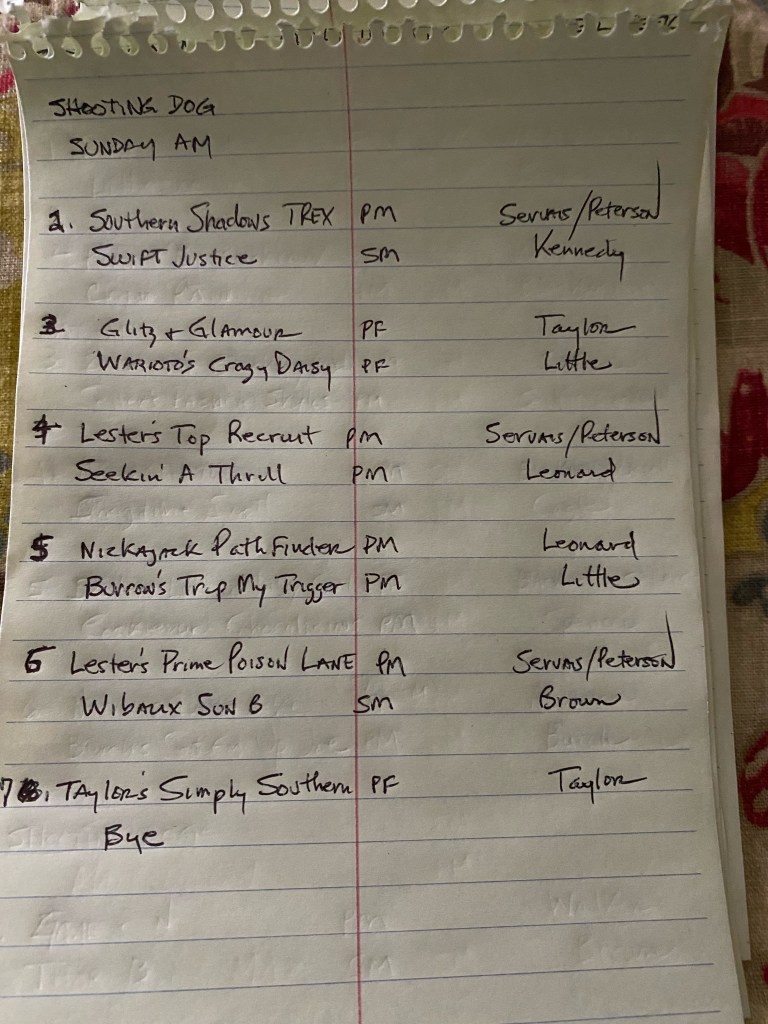 SHOOTING DOG
SUNDAY AM
2. Southern Shadows TREX PM Servais/Peterson
SWIFT Justice SM Kennedy
3 Glitz + GLAMOUR PF Taylor
WARIOTO'S Crazy DAISY PF Little
4 Lester's Top Recruit PM Servais/Peterson
Seekin' A Thrill PM Leonard
5 Nickajack Path Finder PM Leonard
Burrow's Trip My Trigger PM Little
6 Lester's Prime POISON LANE PM Servais/Peterson
WibAUX SON B SM Brown
7. TAylor's Simply Southern PF Taylor
Bye